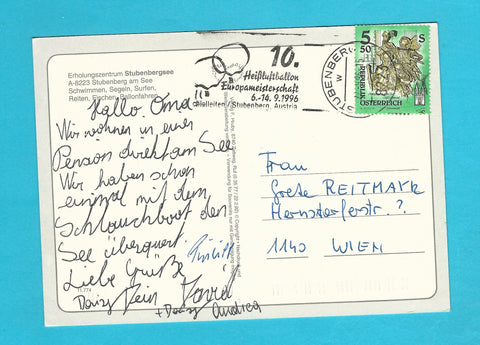 Erholungszentrum Stubenbergsee
A-8223 Stubenberg am See
Schwimmen, Segeln, Surfen,
Reiten, Fischen, Ballonfahren
Hallo Oma
Wir wohnen in einer
Pension direkt am See
Wir haben schon
einmal mit dem
Schlauchboot den
See überquert.
Liebe Grüße
Dein David
Philipp
+ Daisy Andrea
10.
Heißluftballon
Europameisterschaft
6.-14.9.1996
Stubenberg, Austria
STUBENBERG
5
50
S
REPUBLIK
ÖSTERREICH
Frau
Grete REITMAYR
?
1140 WIEN